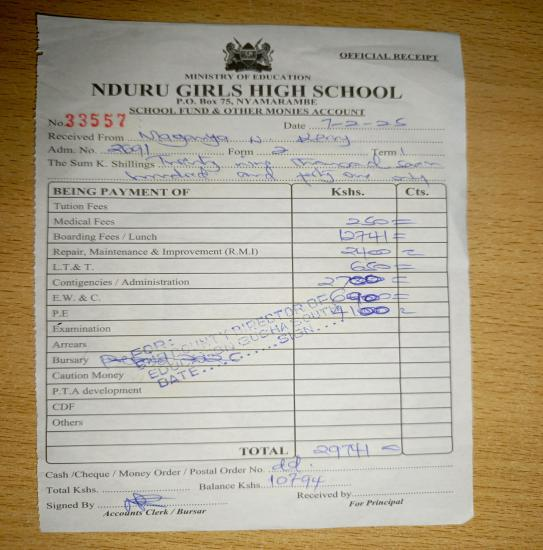 OFFICIAL RECEIPT
MINISTRY OF EDUCATION
NDURU GIRLS HIGH SCHOOL
P.O. Box 75, NYAMARAMBE
SCHOOL FUND & OTHER MONIES ACCOUNT
No. 33557 Date 7-2-25
Received From N. Henry
Adm. No. 2691 Form 2 Term 1
The Sum K. Shillings Twenty nine thousand seven
hundred and forty one only
BEING PAYMENT OF Kshs. Cts.
Tution Fees
Medical Fees 250 =
Boarding Fees / Lunch 12741 =
Repair, Maintenance & Improvement (R.M.I) 2400 =
L.T & T. 650 =
Contigencies / Administration 2700 =
E.W. & C. 6900 =
P.E 4100 =
Examination
Arrears
Bursary
Caution Money
P.T.A development
CDF
Others
FOR:
COUNTY DIRECTOR OF
EDUCATION GUCHA SOUTH
DATE.......SIGN....
TOTAL 29741 =
Cash /Cheque / Money Order / Postal Order No. dd.
Total Kshs. Balance Kshs. 10794
Signed By Received by
Accounts Clerk / Bursar For Principal